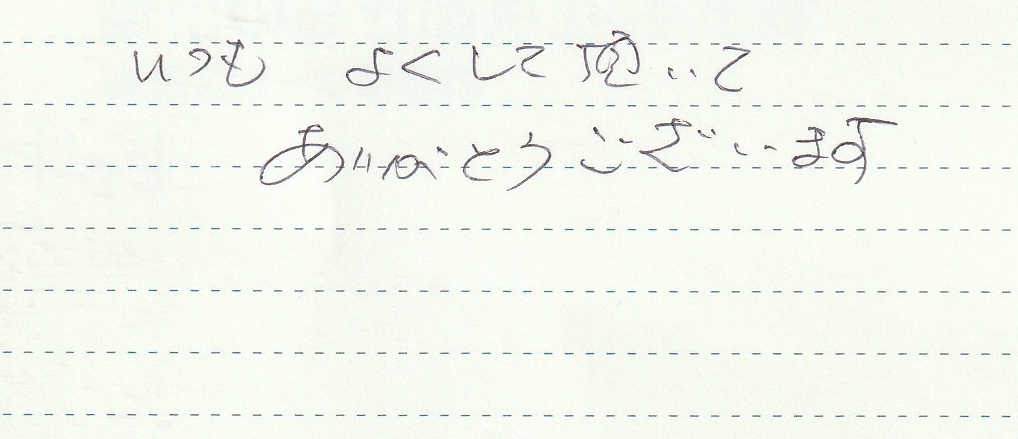 いつも よくして頂いて
ありがとうございます